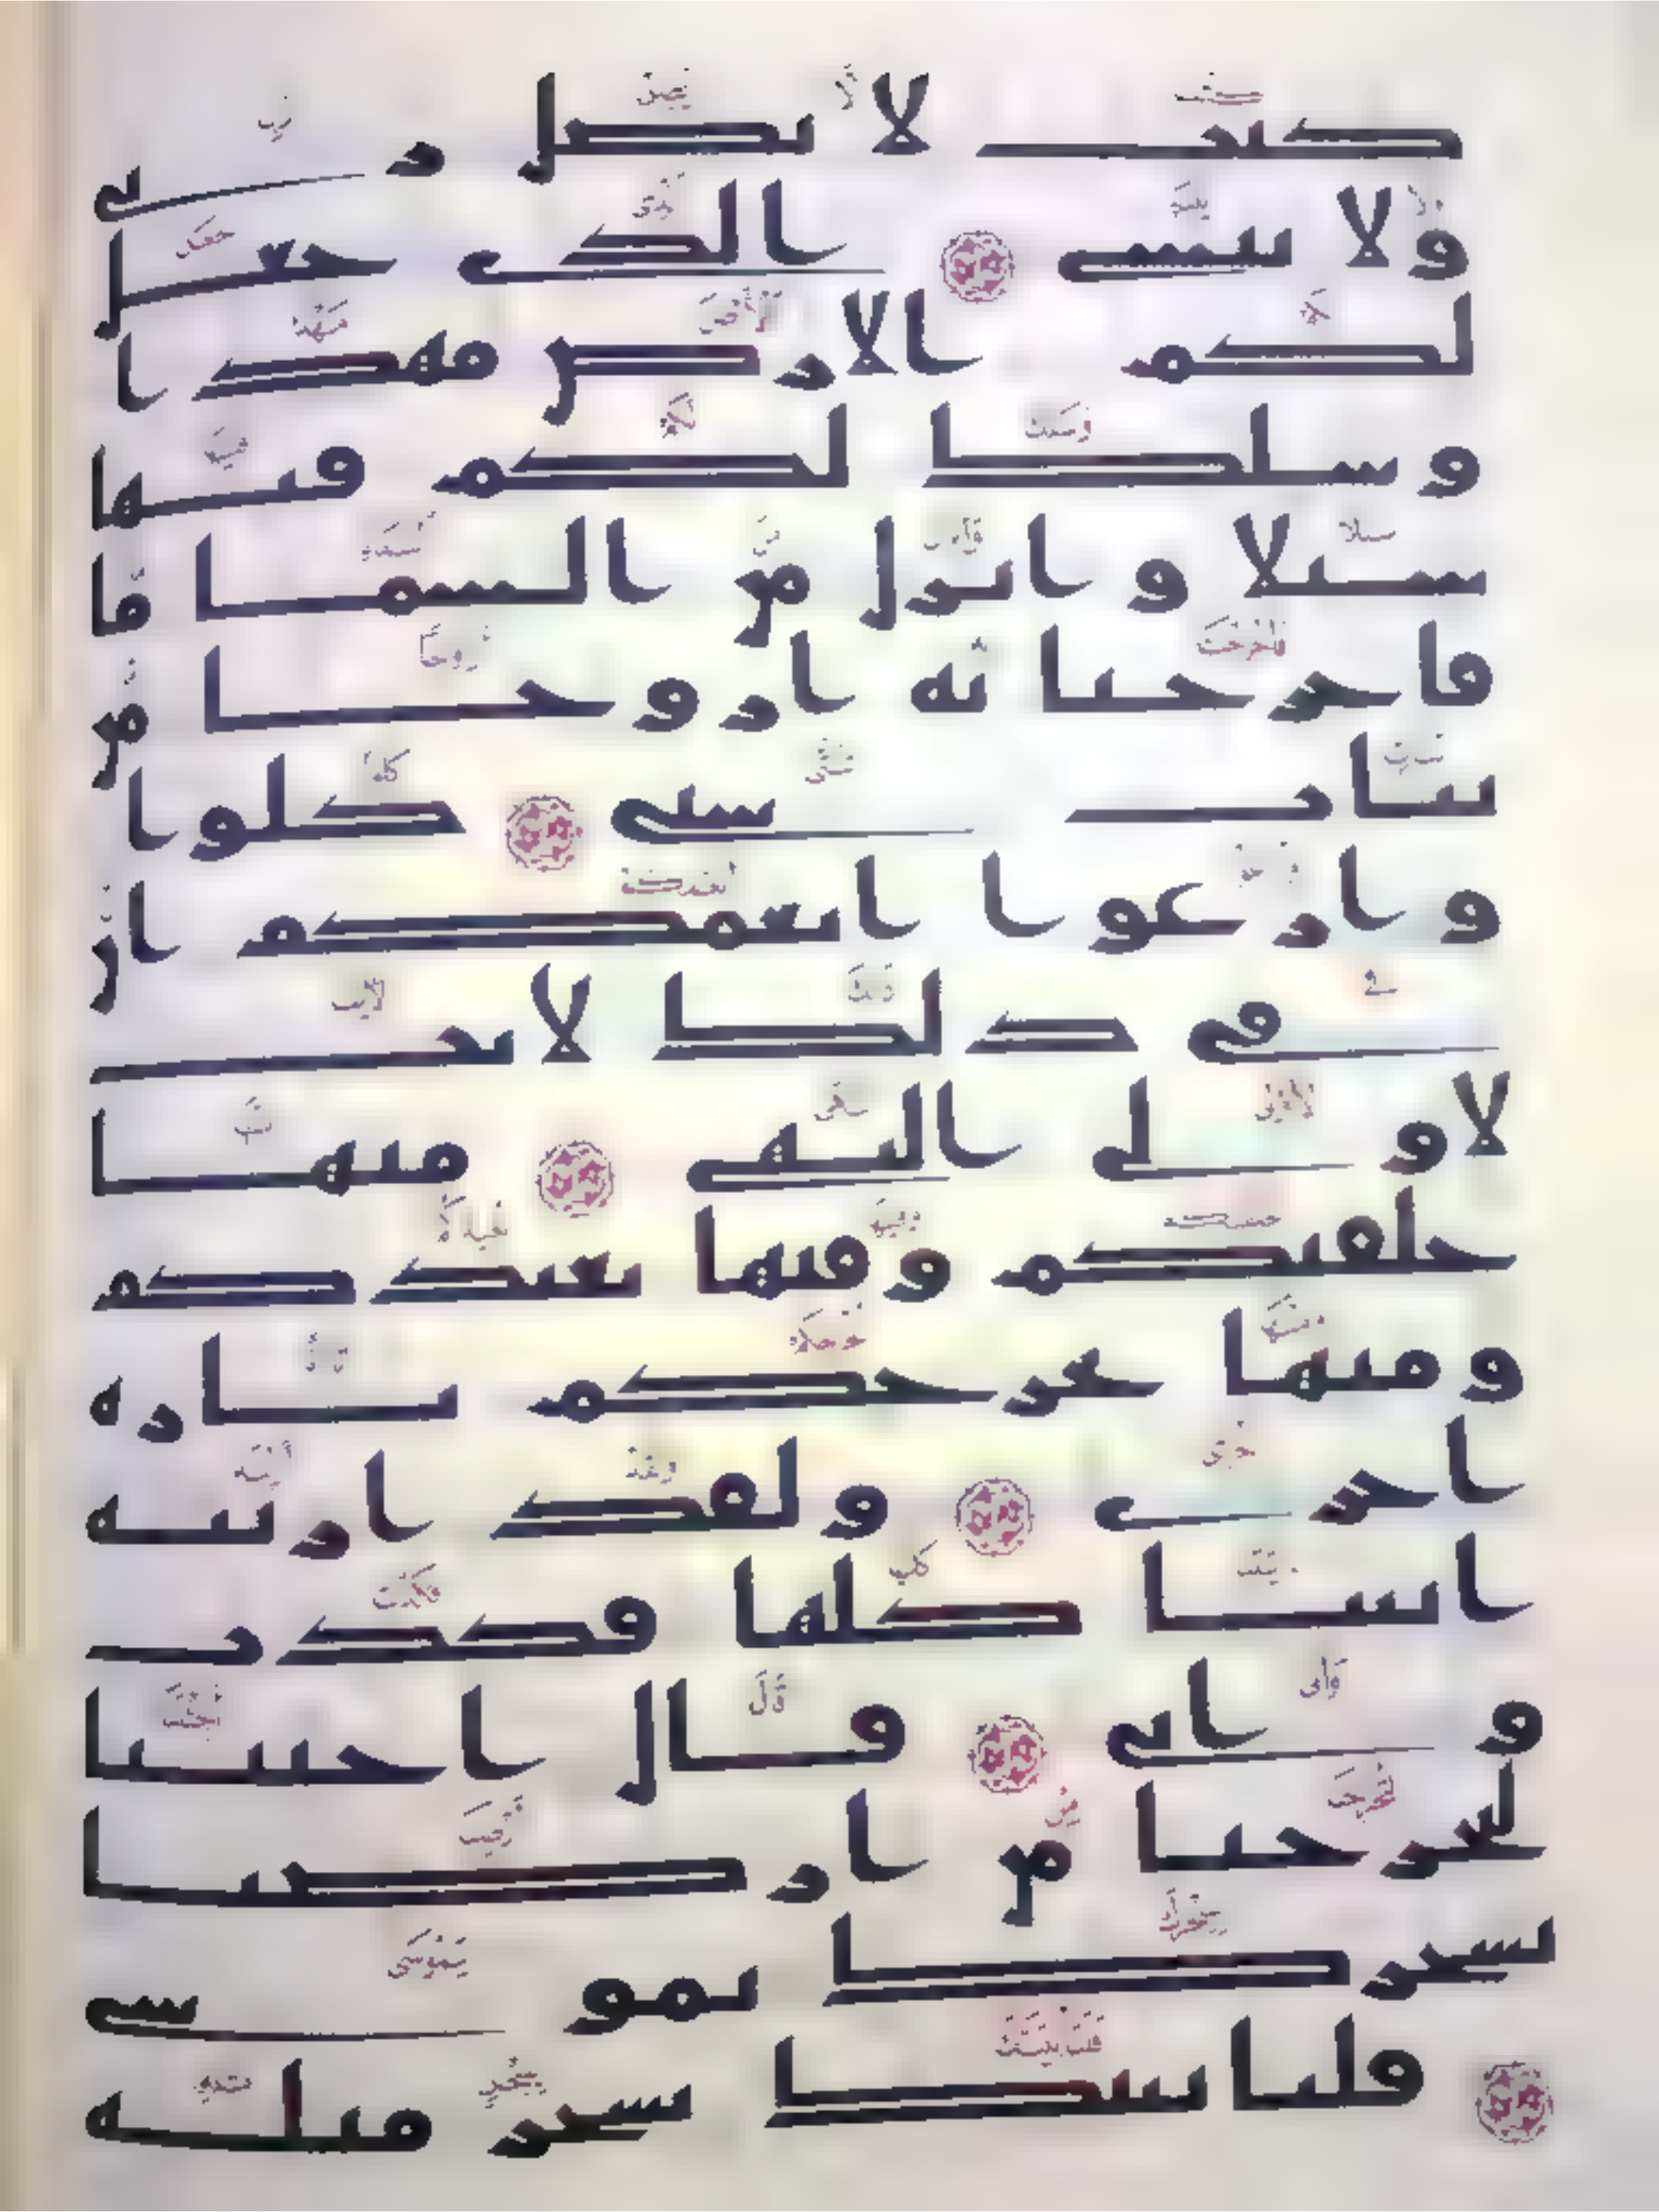 كتب لا يضل ربي
ولا ينسى ۝ الذي جعل
لكم الارض مهدا
وسلك لكم فيها
سبلا وانزل من السما ما
فاخرجنا به ازوجا من
نبات شتى ۝ كلوا
وارعوا انعمكم ان
في ذلك لايت
لاولي النهى ۝ منها
خلقنكم وفيها نعيدكم
ومنها نخرجكم تاره
اخرى ۝ ولقد ارينه
ايتنا كلها فكذب
وابى ۝ قال اجئتنا
لتخرجنا من ارضنا
بسحرك يموسى
۝ فلناتينك بسحر مثله